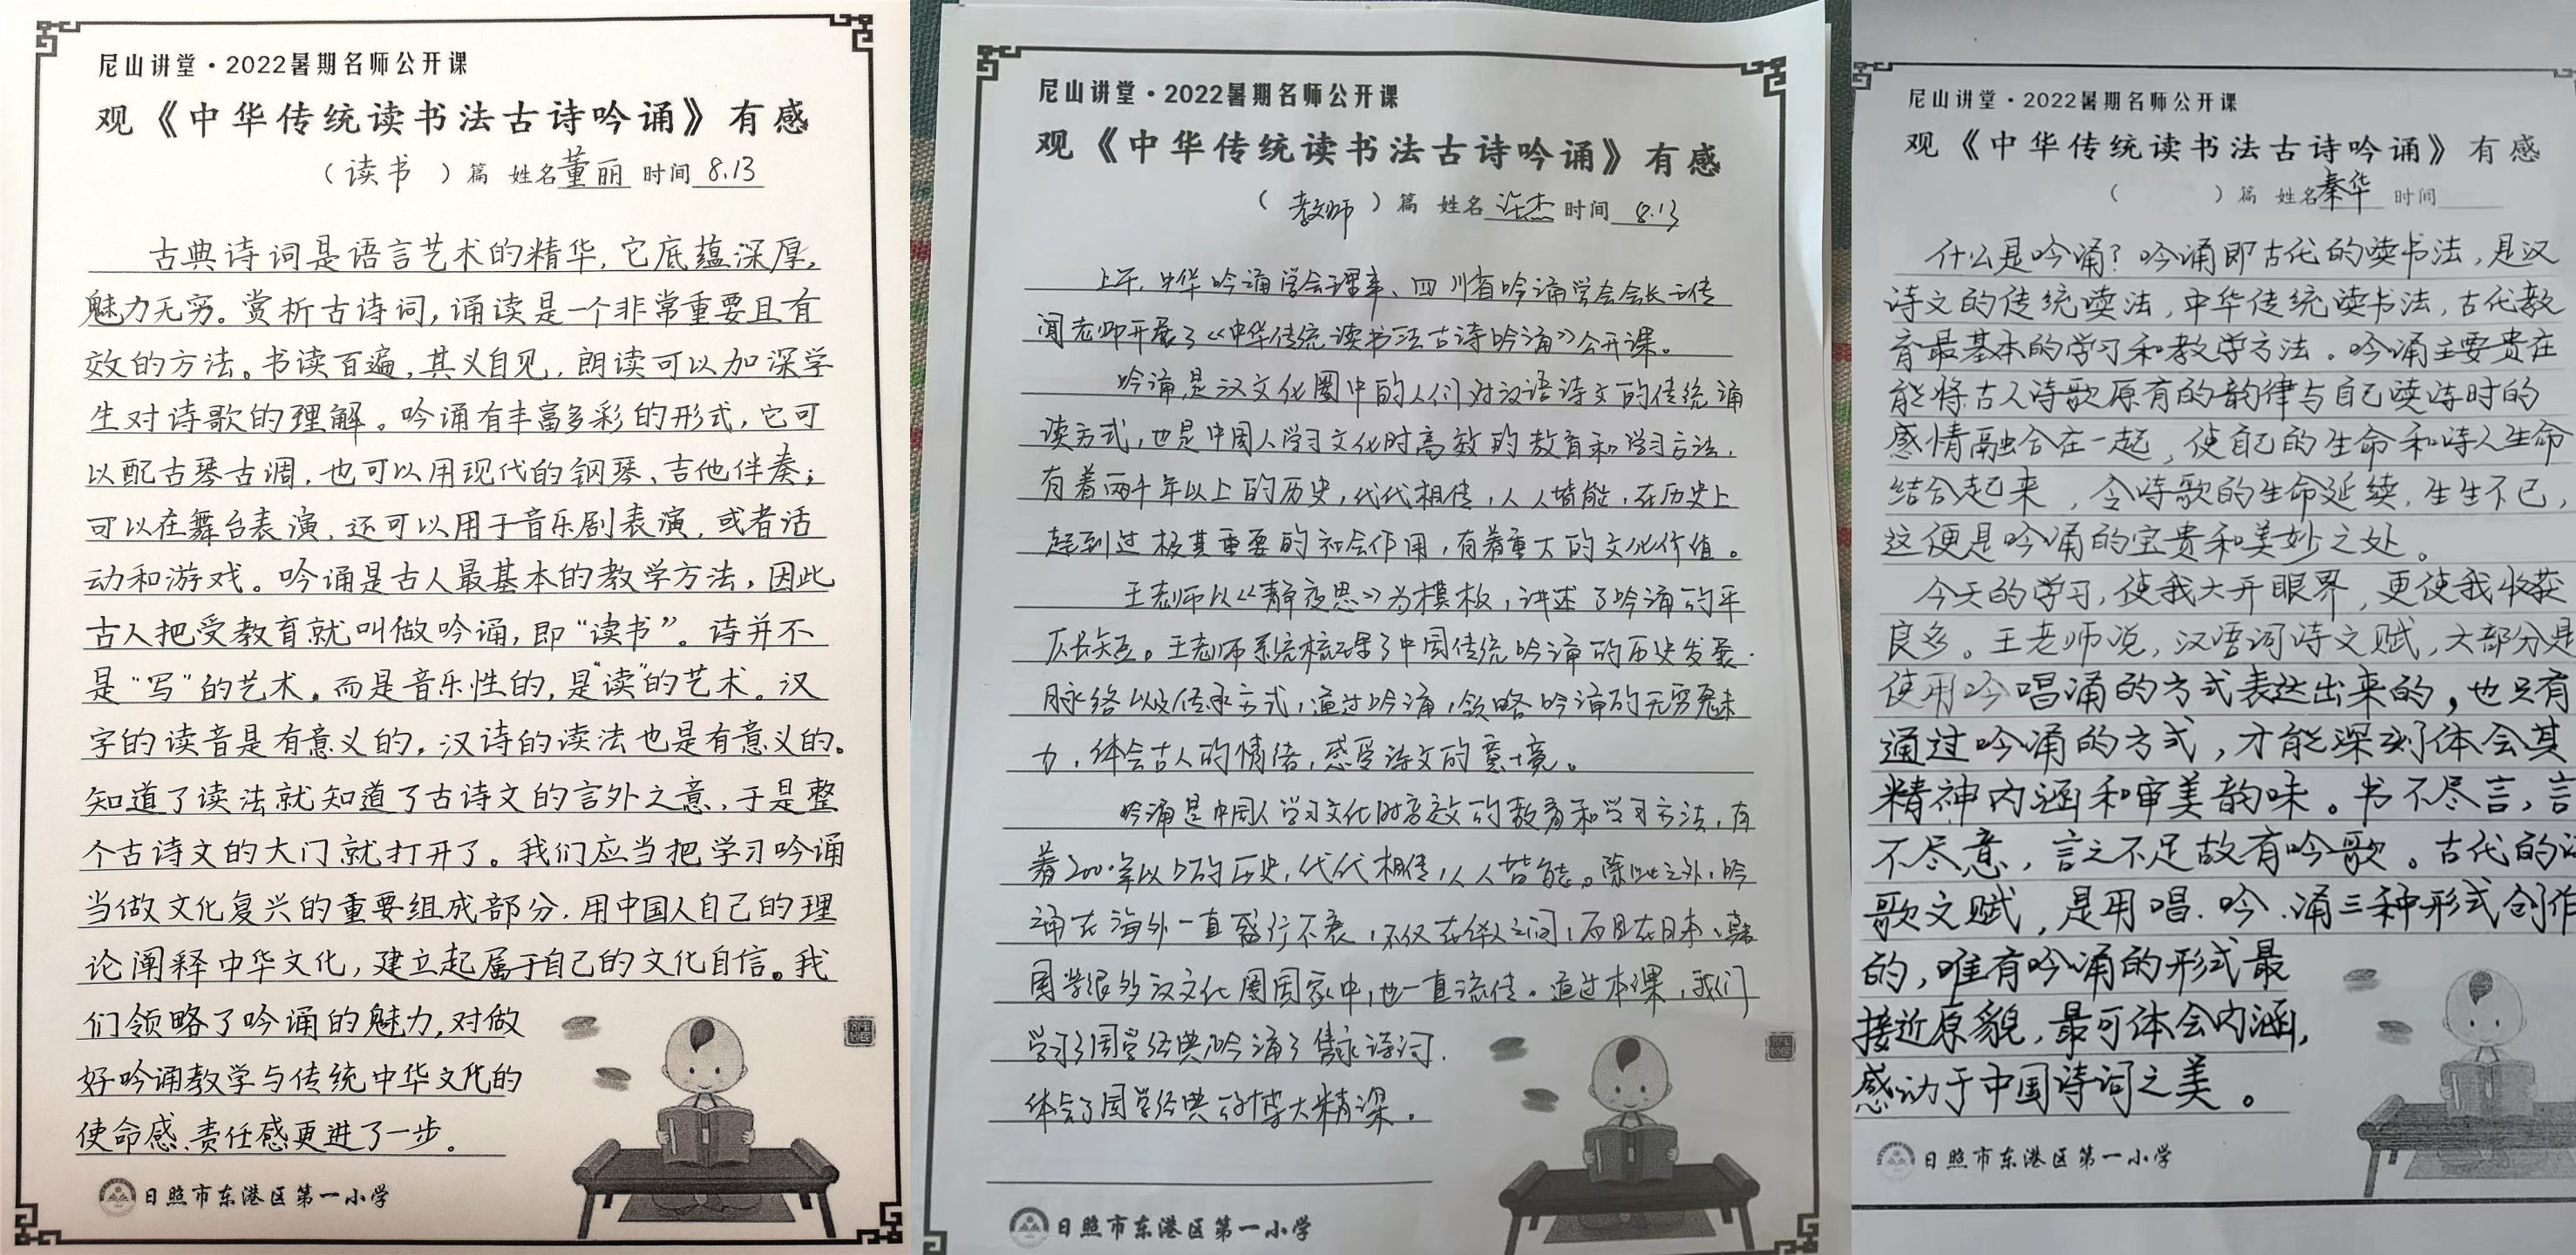 尼山讲堂·2022暑期名师公开课
观《中华传统读书法古诗吟诵》有感
（读书）篇 姓名董丽 时间8.13
古典诗词是语言艺术的精华,它底蕴深厚,
魅力无穷。赏析古诗词,诵读是一个非常重要且有
效的方法。书读百遍,其义自见,朗读可以加深学
生对诗歌的理解。吟诵有丰富多彩的形式,它可
以配古琴古调,也可以用现代的钢琴、吉他伴奏;
可以在舞台表演,还可以用于音乐剧表演,或者话
动和游戏。吟诵是古人最基本的教学方法,因此
古人把受教育就叫做吟诵,即“读书”。诗并不
是“写”的艺术,而是音乐性的,是“读”的艺术。汉
字的读音是有意义的,汉诗的读法也是有意义的。
知道了读法就知道了古诗文的言外之意,于是整
个古诗文的大门就打开了。我们应当把学习吟诵
当做文化复兴的重要组成部分,用中国人自己的理
论阐释中华文化,建立起属于自己的文化自信。我
们领略了吟诵的魅力,对做
好吟诵教学与传统中华文化的
使命感、责任感更进了一步。
日照市东港区第一小学
尼山讲堂·2022暑期名师公开课
观《中华传统读书法古诗吟诵》有感
（教师）篇 姓名许杰 时间8.13
上午,中华吟诵学会理事、四川省吟诵学会会长王传
闻老师开展了《中华传统读书法古诗吟诵》公开课。
吟诵,是汉文化圈中的人们对汉语诗文的传统诵
读方式,也是中国人学习文化时高效的教育和学习方法,
有着两千年以上的历史,代代相传,人人皆能,在历史上
起到过极其重要的社会作用,有着重大的文化价值。
王老师以《静夜思》为模板,讲述了吟诵的平
仄长短。王老师系统梳理了中国传统吟诵的历史发展
脉络以及传承方式,通过吟诵,领略吟诵的无穷魅
力,体会古人的情绪,感受诗文的意境。
吟诵是中国人学习文化时高效的教育和学习方法,有
着2000年以上的历史,代代相传,人人皆能。除此之外,吟
诵在海外一直盛行不衰,不仅在华人之间,而且在日本、韩
国等很多汉文化圈国家中,也一直流传。通过本课,我们
学习了国学经典,吟诵了隽永诗词,
体会了国学经典的博大精深。
日照市东港区第一小学
尼山讲堂·2022暑期名师公开课
观《中华传统读书法古诗吟诵》有感
（ ）篇 姓名秦华 时间
什么是吟诵?吟诵即古代的读书法,是汉
诗文的传统读法,中华传统读书法,古代教
育最基本的学习和教学方法。吟诵主要贵在
能将古人诗歌原有的韵律与自己读诗时的
感情融合在一起,使自己的生命和诗人生命
结合起来,令诗歌的生命延续,生生不已,
这便是吟诵的宝贵和美妙之处。
今天的学习,使我大开眼界,更使我收获
良多。王老师说,汉语词诗文赋,大部分是
使用吟唱诵的方式表达出来的,也只有
通过吟诵的方式,才能深刻体会其
精神内涵和审美韵味。书不尽言,言
不尽意,言之不足故有吟歌。古代的
歌文赋,是用唱、吟、诵三种形式创作
的,唯有吟诵的形式最
接近原貌,最可体会内涵,
感动于中国诗词之美。
日照市东港区第一小学